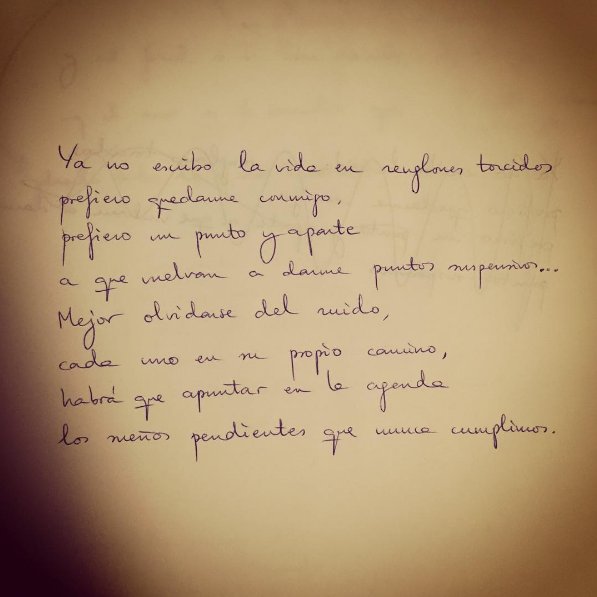 Ya no escribo la vida en renglones torcidos
prefiero quedarme conmigo,
prefiero un punto y aparte
a que vuelvan a darme puntos suspensivos...
Mejor olvidarse del ruido,
cada uno en su propio camino,
habrá que apuntar en la agenda
los sueños pendientes que nunca cumplimos.